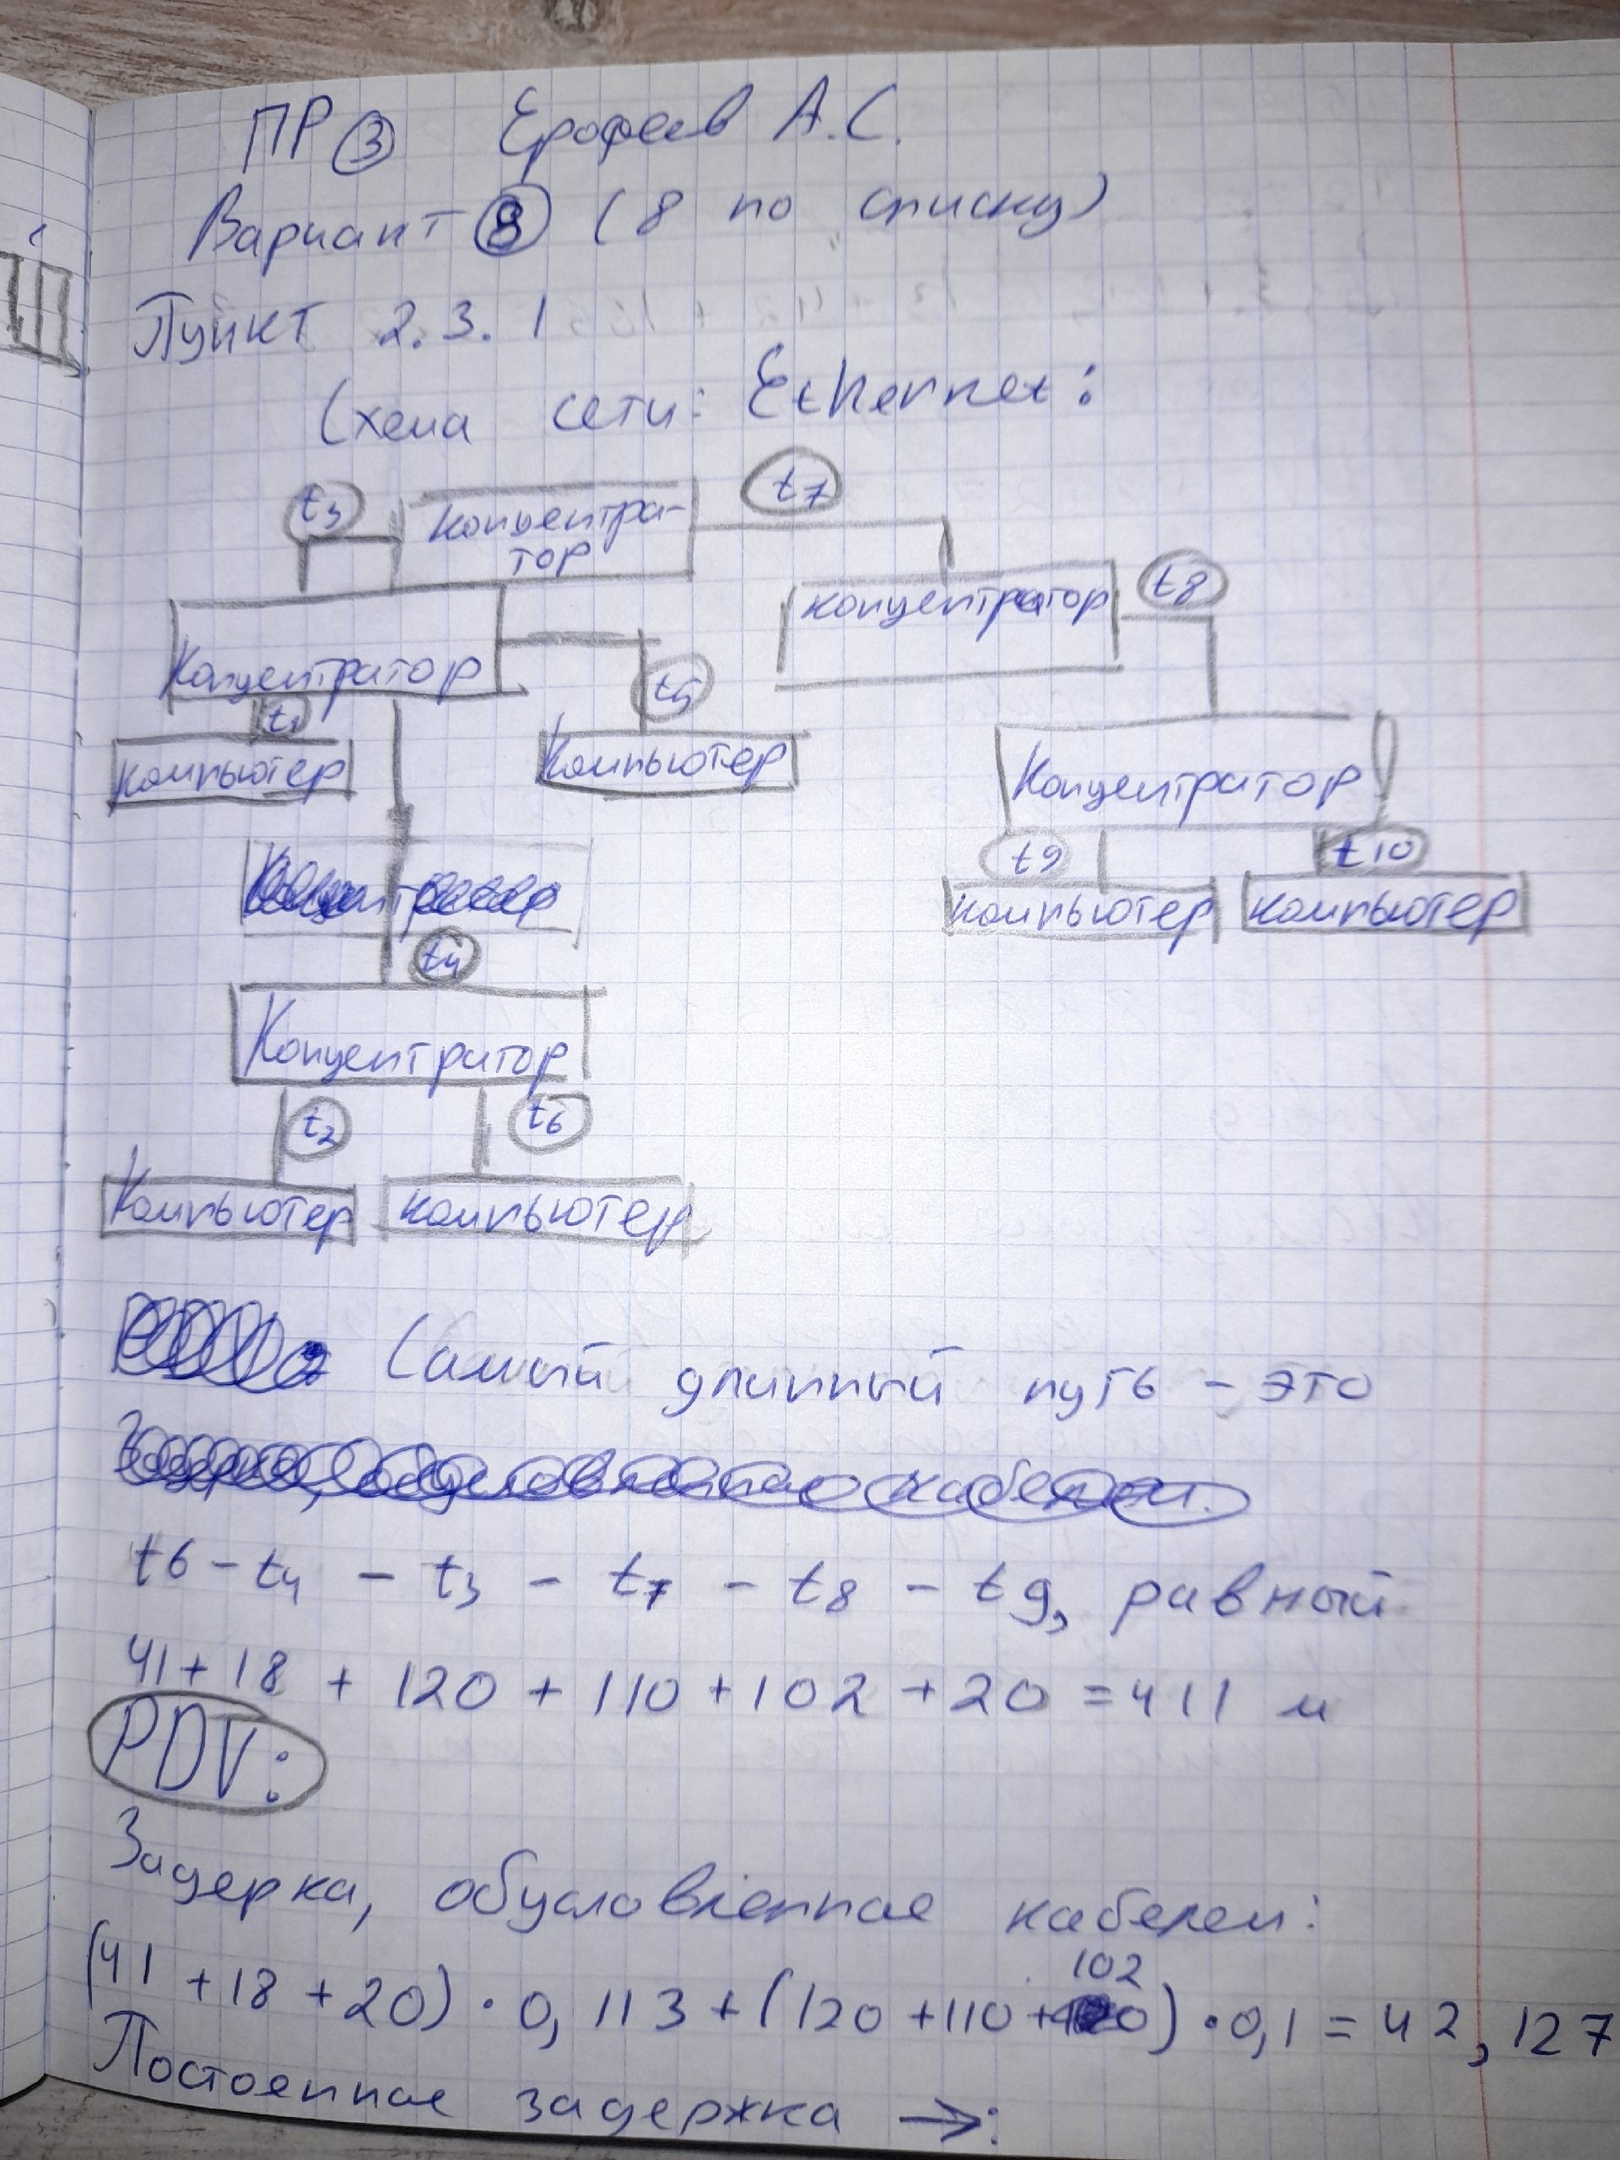 ПР 3 Ерофеев А.С.
Вариант 8 (8 по списку)
Пункт 2.3.1
Схема сети: Ethernet:
t3
концентра-
тор
t7
концентратор
t8
Концентратор
t1
t5
компьютер
Компьютер
Концентратор
t9
t10
компьютер
компьютер
t4
Концентратор
t2
t6
Компьютер
компьютер
Самый длинный путь - это
t6 - t4 - t3 - t7 - t8 - t9, равный
41 + 18 + 120 + 110 + 102 + 20 = 411 м
PDV:
Задерка, обусловленная кабелем:
(41 + 18 + 20) · 0,113 + (120 + 110 + 102) · 0,1 = 42,127
Постоянная задержка →: